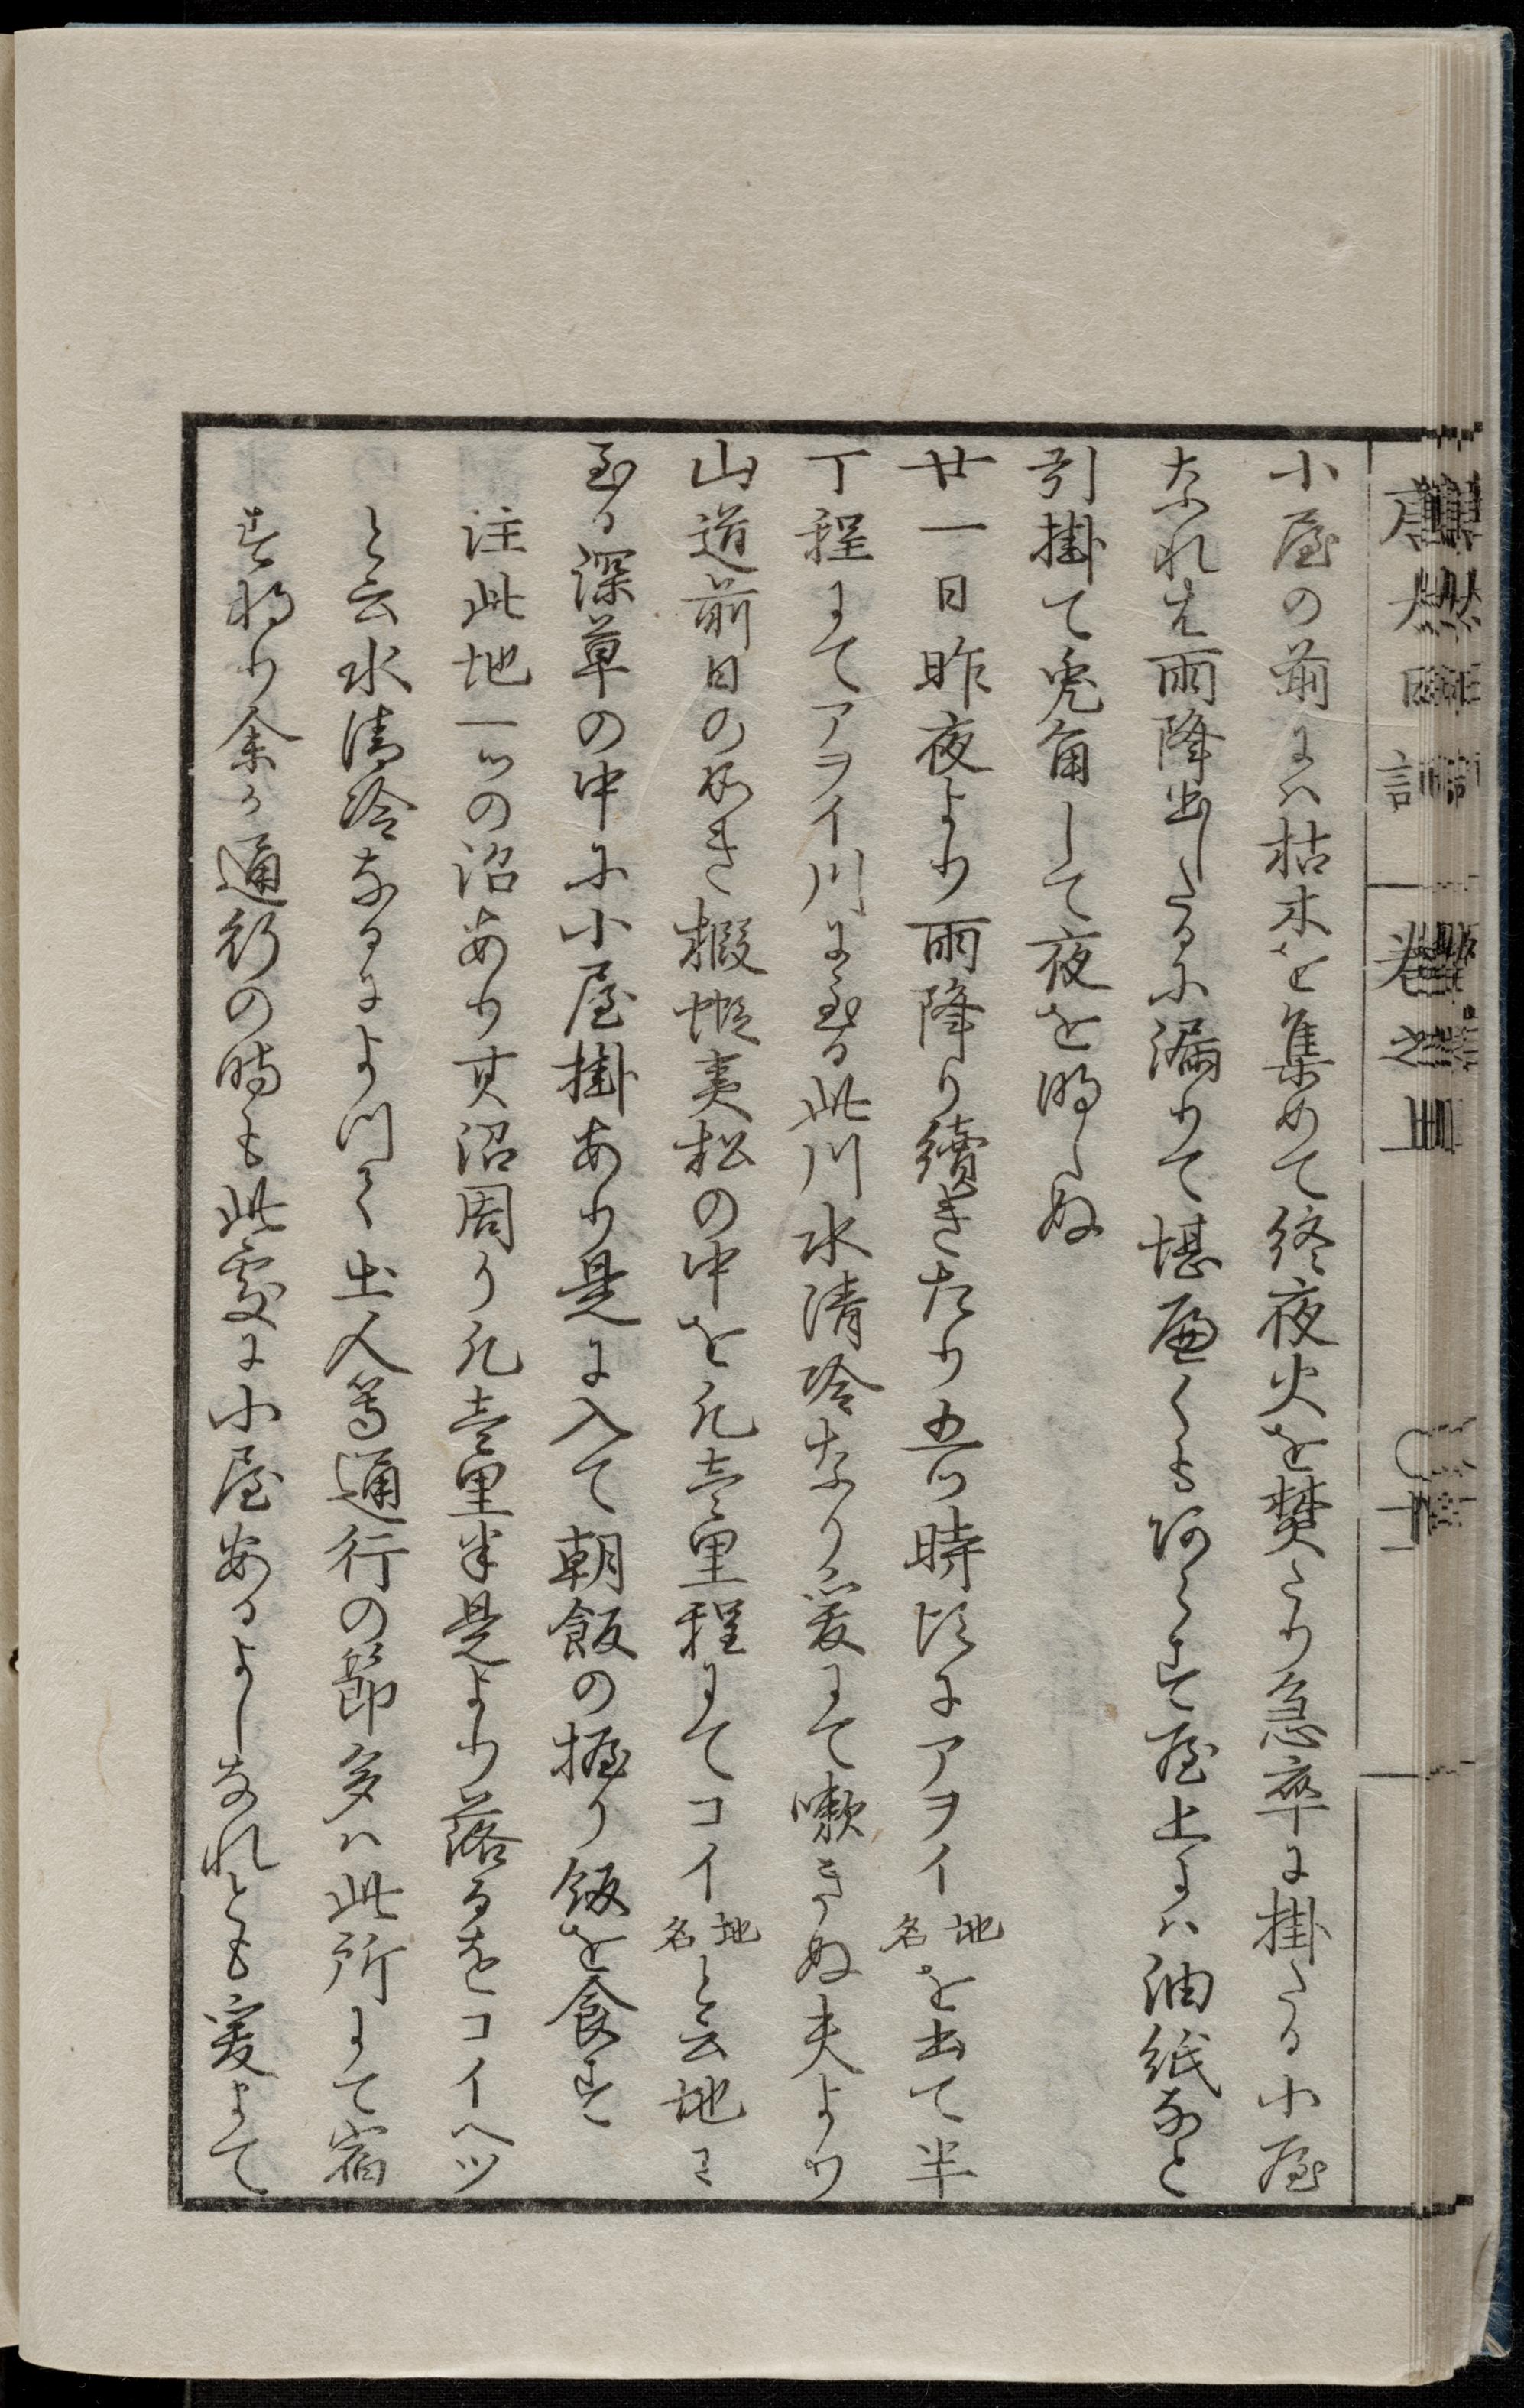 小屋の前には枯木を集めて終夜火を焚たり急卒に掛たる小屋
なれは雨降出したるに漏りて堪扁くも阿らす屋上には油紙なと
引掛て兎角して夜を明しぬ
廿一日昨夜より雨降り續きたり五ツ時頃にアヲイ地名を出て半
丁程にてアヲイ川に至る此川水清冷なり爰にて嗽きぬ夫より
山道前日の如き椴蝦夷松の中を凡壱里程にてコイ地名と云地に
至る深草の中に小屋掛あり是に入て朝飯の握り飯を食す
注此地一ツの沼あり其沼周り凡壱里半是より落るをコイヘツ
と云水清冷なるによつて土人等通行の節多は此所にて宿
す将り余か通行の時も此處に小屋あるよしなれとも爰にて